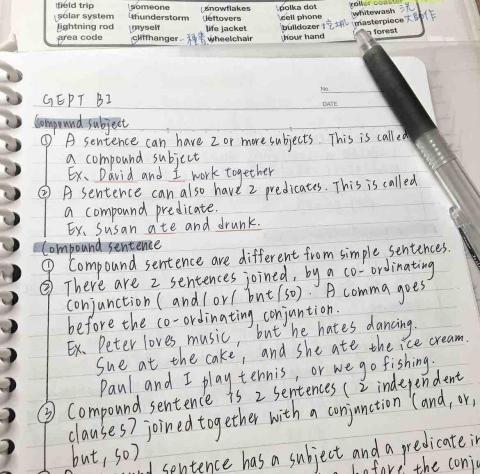 field trip
someone
snowflakes
polka dot
roller coaster
solar system
thunderstorm
leftovers
cell phone
whitewash
lightning rod
myself
life jacket
bulldozer
masterpiece
area code
cliffhanger
wheelchair
hour hand
forest
No.
DATE
GEPT B1
Compound subject
① A sentence can have 2 or more subjects. This is called
a compound subject
Ex. David and I work together
② A sentence can also have 2 predicates. This is called
a compound predicate.
Ex. Susan ate and drunk.
Compound sentence
① Compound sentence are different from simple sentences.
② There are 2 sentences joined, by a co-ordinating
conjunction (and/or/but/so). A comma goes
before the co-ordinating conjuntion.
Ex. Peter loves music, but he hates dancing.
Sue at the cake, and she ate the ice cream.
Paul and I play tennis, or we go fishing.
③ Compound sentence is 2 sentences (2 independent
clauses) joined together with a conjunction (and, or,
but, so)
sentence has a subject and a predicate in
before the